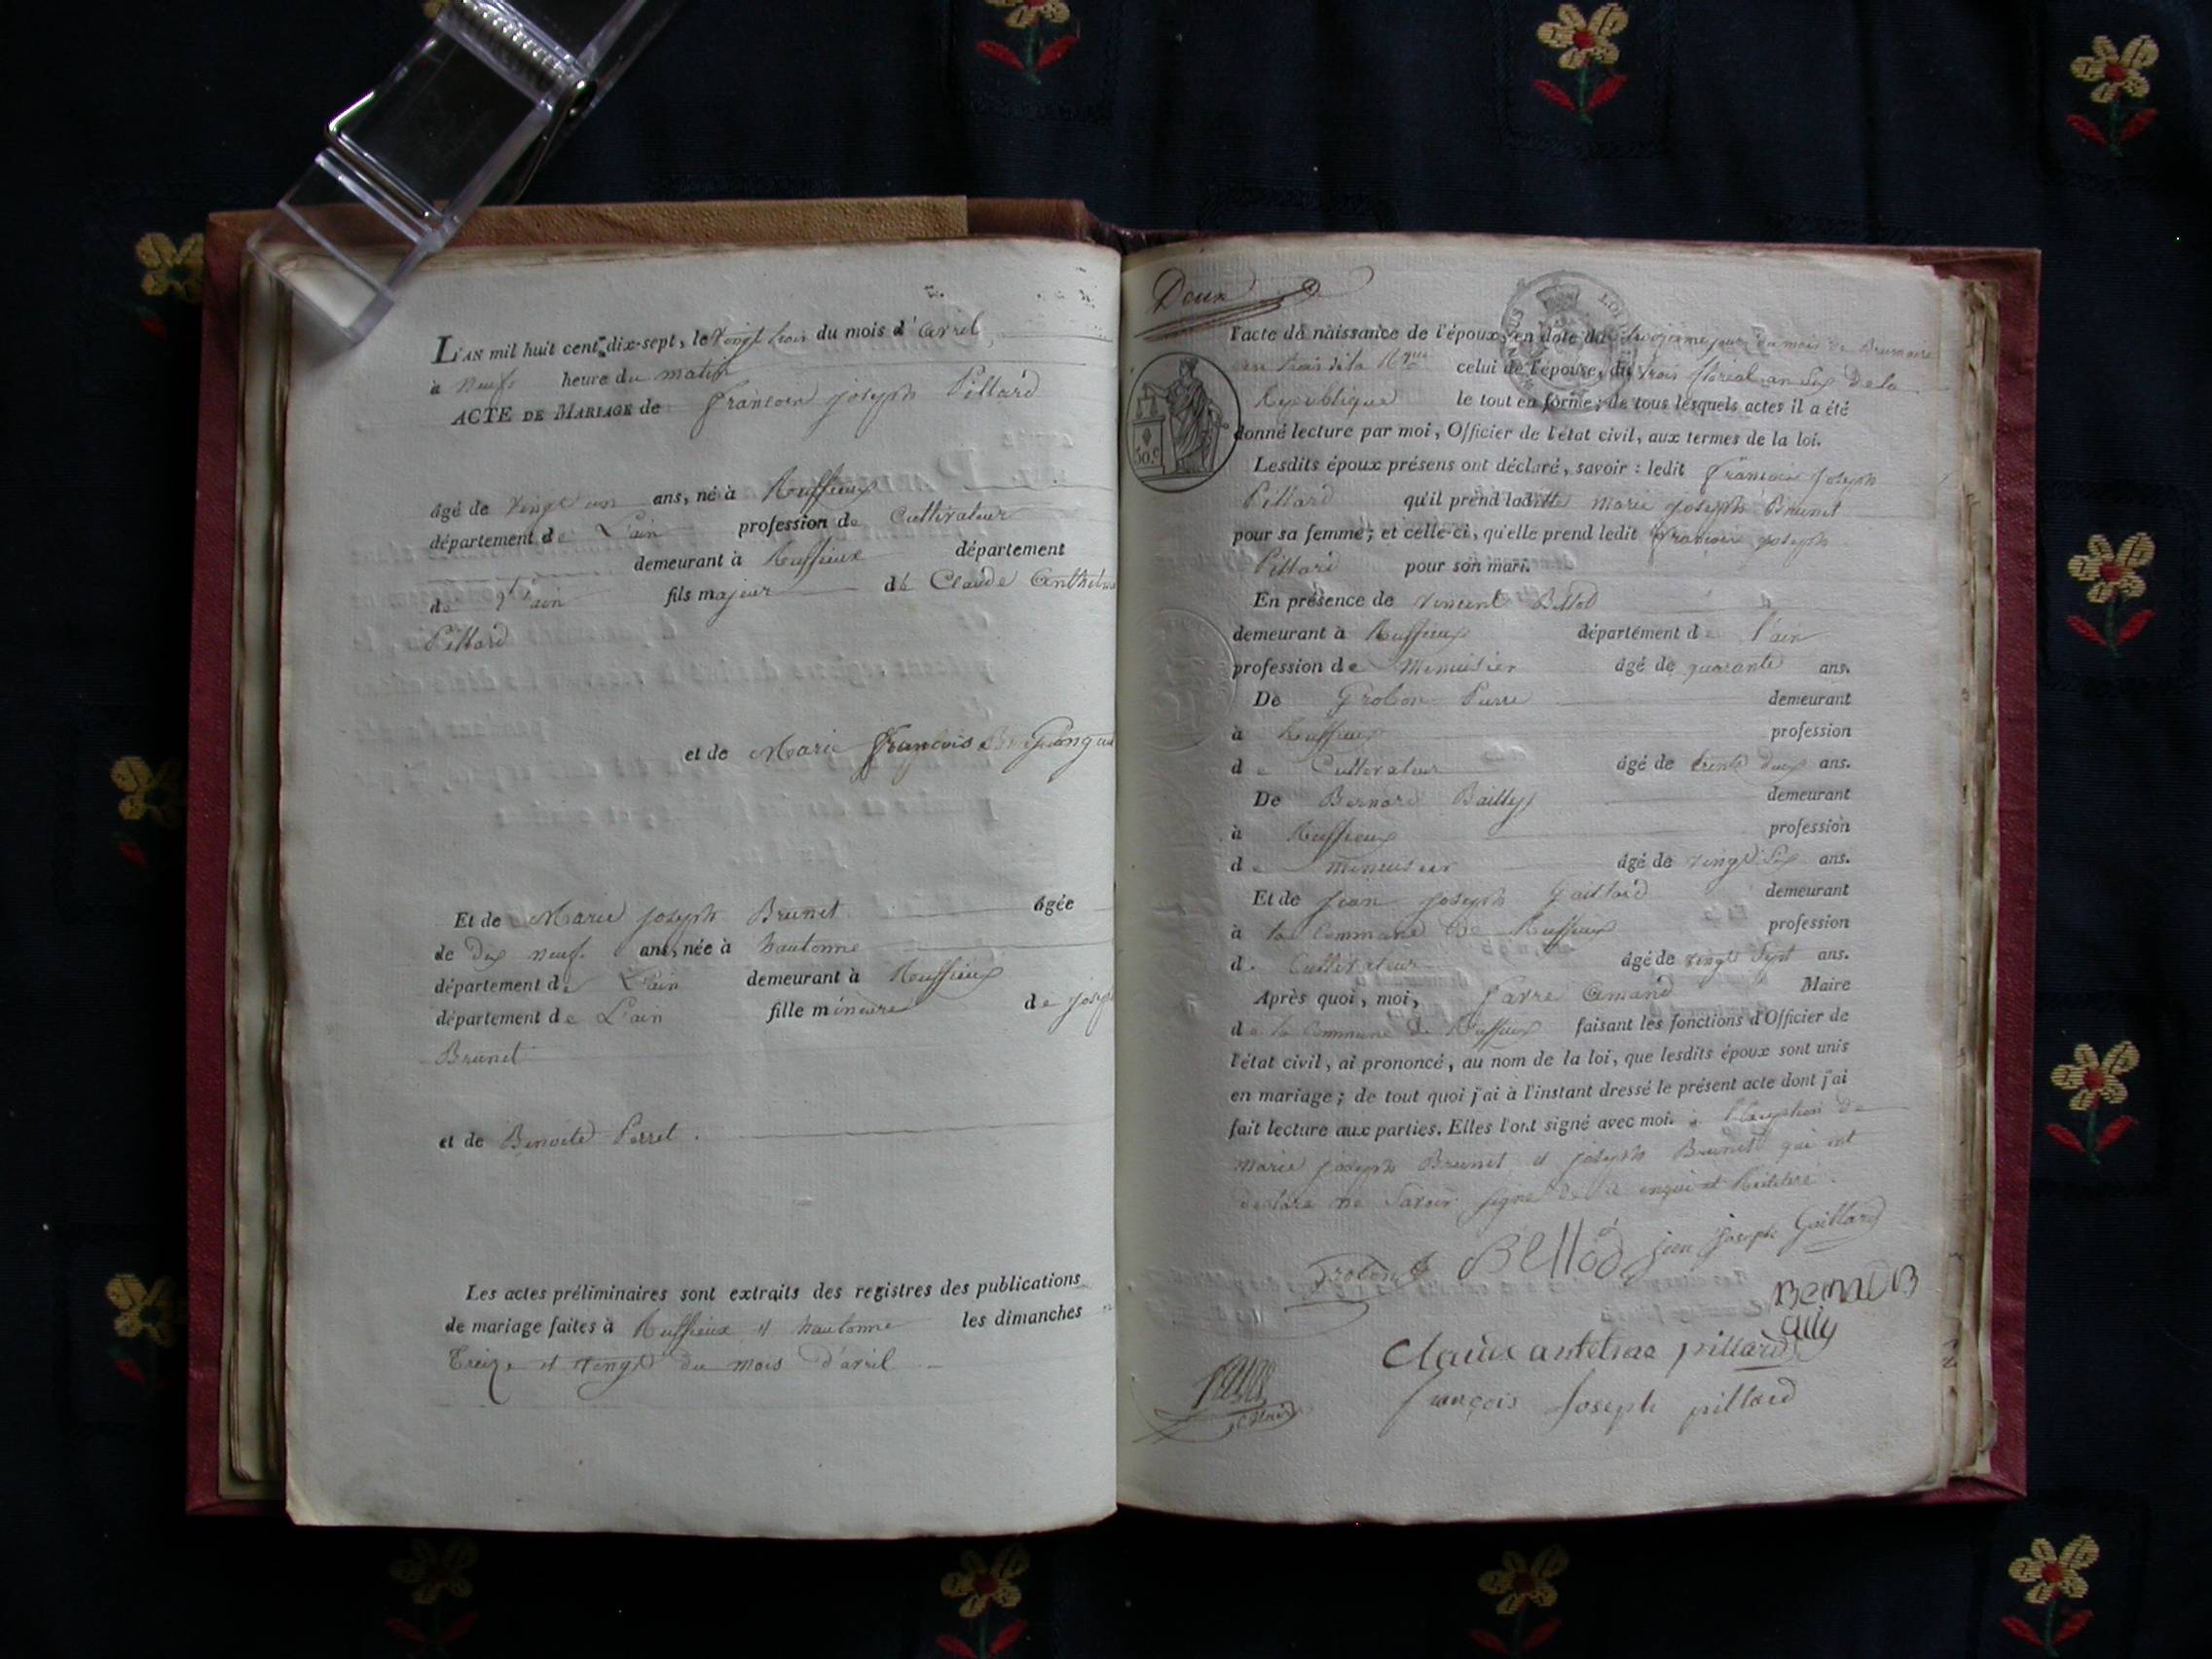 L'AN mil huit cent dix-sept, le vingt trois du mois d'avril
à neuf heure du matin
ACTE DE MARIAGE de françois joseph Pillard
âgé de vingt un ans, né à Ruffieux
département de L'ain profession de Cultivateur
demeurant à Ruffieux département
de l'ain fils majeur de Claude Anthelme
Pillard
et de Marie françoise
Et de Marie joseph Brunet âgée
de dix neuf ans, née à hautonne
département de L'ain demeurant à Ruffieux
département de L'ain fille mineure de joseph
Brunet
et de Benoite Perret.
Les actes préliminaires sont extraits des registres des publications
de mariage faites à Ruffieux et hautonne les dimanches
Treize et vingt du mois d'avril
Deux
l'acte de naissance de l'époux, en date du jour du mois de Brumaire
an trois de la celui de l'épouse, du trois floréal an Six de la
République le tout en forme; de tous lesquels actes il a été
donné lecture par moi, Officier de l'état civil, aux termes de la loi.
50.c
Lesdits époux présens ont déclaré, savoir : ledit françois Joseph
Pillard qu'il prend ladite Marie Joseph Brunet
pour sa femme; et celle-ci, qu'elle prend ledit françois joseph
Pillard pour son mari.
En présence de vincent Bellod
demeurant à Ruffieux département de l'ain
profession de Menuisier âgé de quarante ans.
De Grobon Pierre demeurant
à Ruffieux profession
de Cultivateur âgé de trente deux ans.
De Bernard Bailly demeurant
à Ruffieux profession
de menuisier âgé de vingt Six ans.
Et de Jean Joseph Gaillard demeurant
à la Commune De Ruffieux profession
de Cultivateur âgé de vingt Sept ans.
Après quoi, moi, favre Amand Maire
de la Commune de Ruffieux faisant les fonctions d'Officier de
l'état civil, ai prononcé, au nom de la loi, que lesdits époux sont unis
en mariage; de tout quoi j'ai à l'instant dressé le présent acte dont j'ai
fait lecture aux parties. Elles l'ont signé avec moi. à l'exception de
Marie joseph Brunet et joseph Brunet qui ont
declare ne Savoir Signé De ce enquis et
Grobon Bellod jean joseph Gaillard
Bernard B
ailly
Claude antelme pillard
françois Joseph pillard